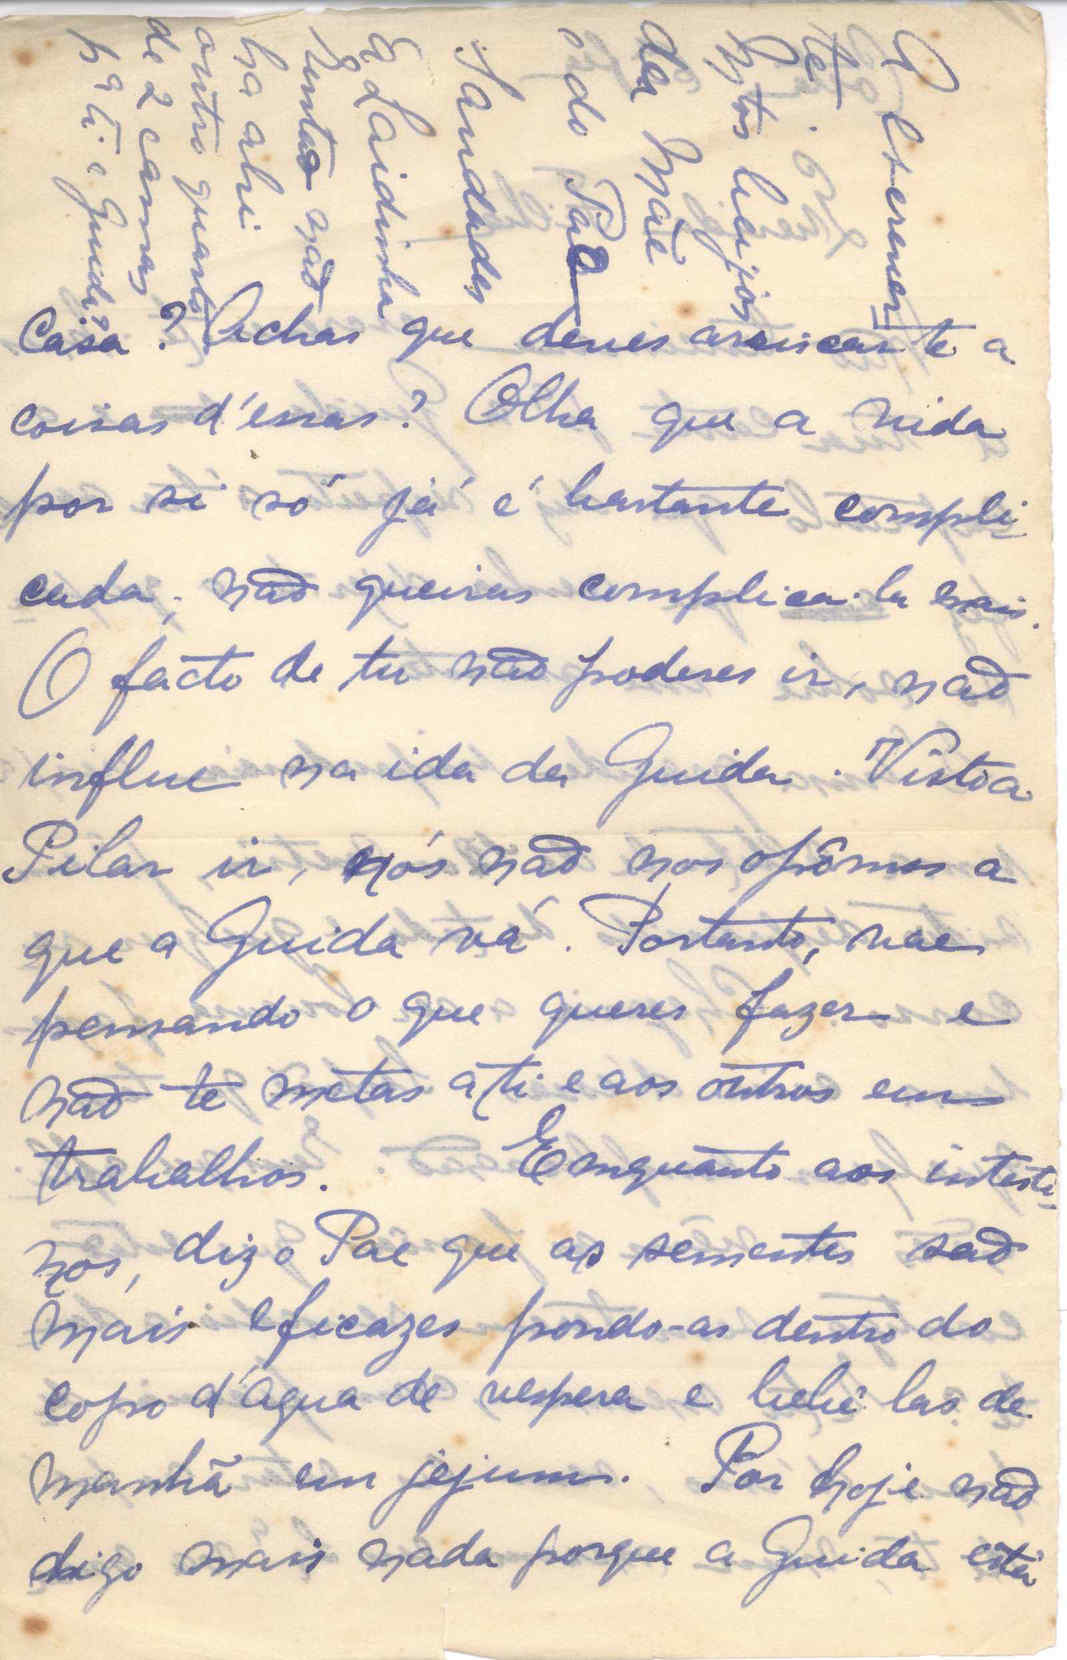 Casa? Achas que deves arriscar-te a
coisas d'essas? Olha que a vida
por si só já é bastante compli-
cada, não queiras complica-la mais.
O facto de tu não poderes ir, não
influe na ida da Guida. Visto a
Pilar ir, nós não nos opômos a
que a Guida vá. Portanto, vae
pensando o que queres fazer e
não te metas a ti e aos outros em
trabalhos. Emquanto aos intesti-
nos, diz o Pae que as sementes são
mais eficazes pondo-as dentro do
copo d'água de vespera e bebê-las de
manhã em jejum. Por hoje não
digo mais nada porque a Guida está
a escrever
te.
Mtos beijos
da Mãe
e do Pae
Saudades
á Laidinha
Então não
ha ahi
outro quarto
de 2 camas
p.ª ti e Guida?